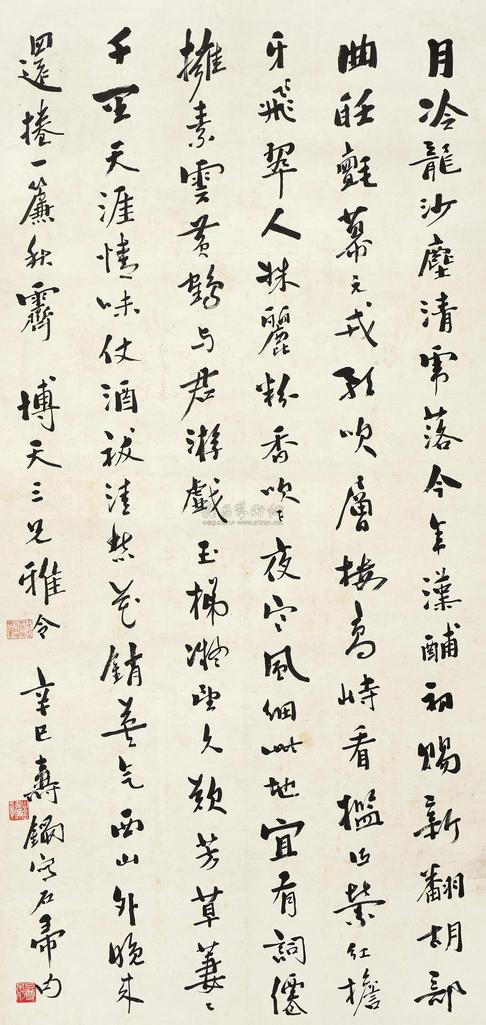 月冷龍沙塵清虎落今年漢酺初賜新翻胡部
曲聽氈幕元戎歌吹層樓高峙看檻曲縈紅檐
牙飛翠人姝麗粉香吹下夜寒風細此地宜有詞僊
擁素雲黃鶴与君游戲玉梯凝望久歎芳草萋〻
千里天涯情味仗酒祓清愁花銷英气西山外晚來
還捲一簾秋霽 博天三兄雅令 辛巳壽鑈寫石帚句